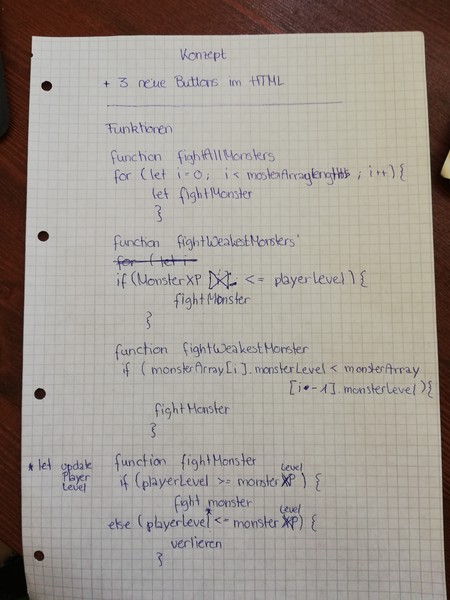 Konzept
+ 3 neue Buttons im HTML
Funktionen
function fightAllMonsters
for (let i = 0; i < monsterArray.length; i++) {
let fightMonster
}
function fightWeakestMonsters
for (let i
if (MonsterXP <= playerLevel) {
fightMonster
}
function fightWeakestMonster
if (monsterArray[i].monsterLevel < monsterArray
[i-1].monsterLevel) {
fightMonster
}
function fightMonster
* let update
Player
Level
if (playerLevel >= monster Level) {
fight monster
*
else (playerLevel <= monster Level) {
verlieren
}